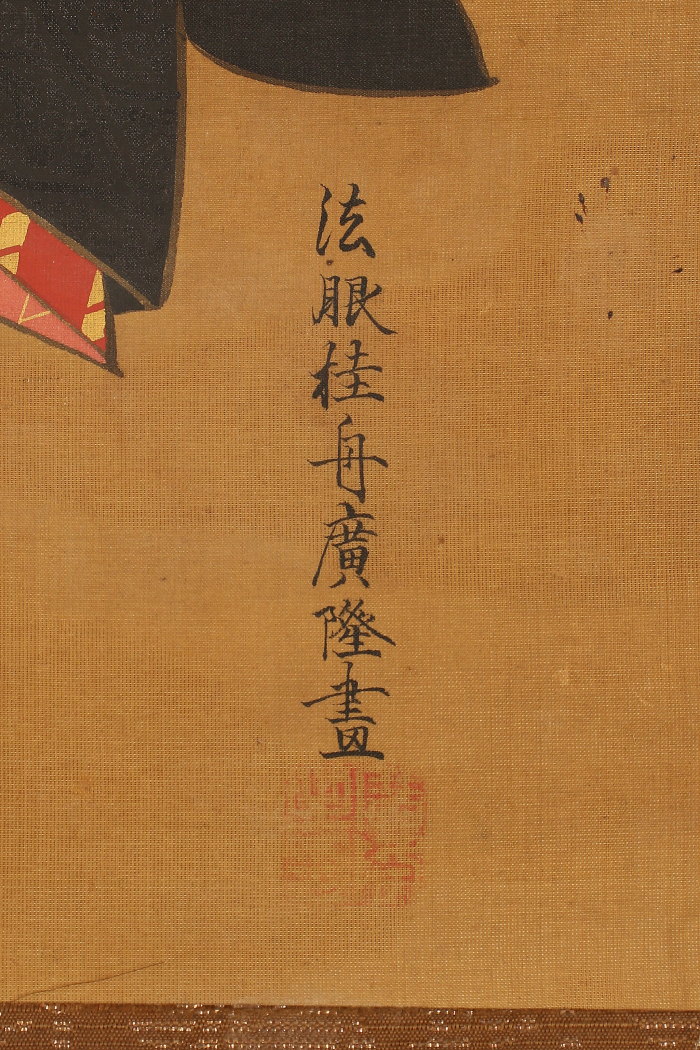 法眼桂舟廣隆畫